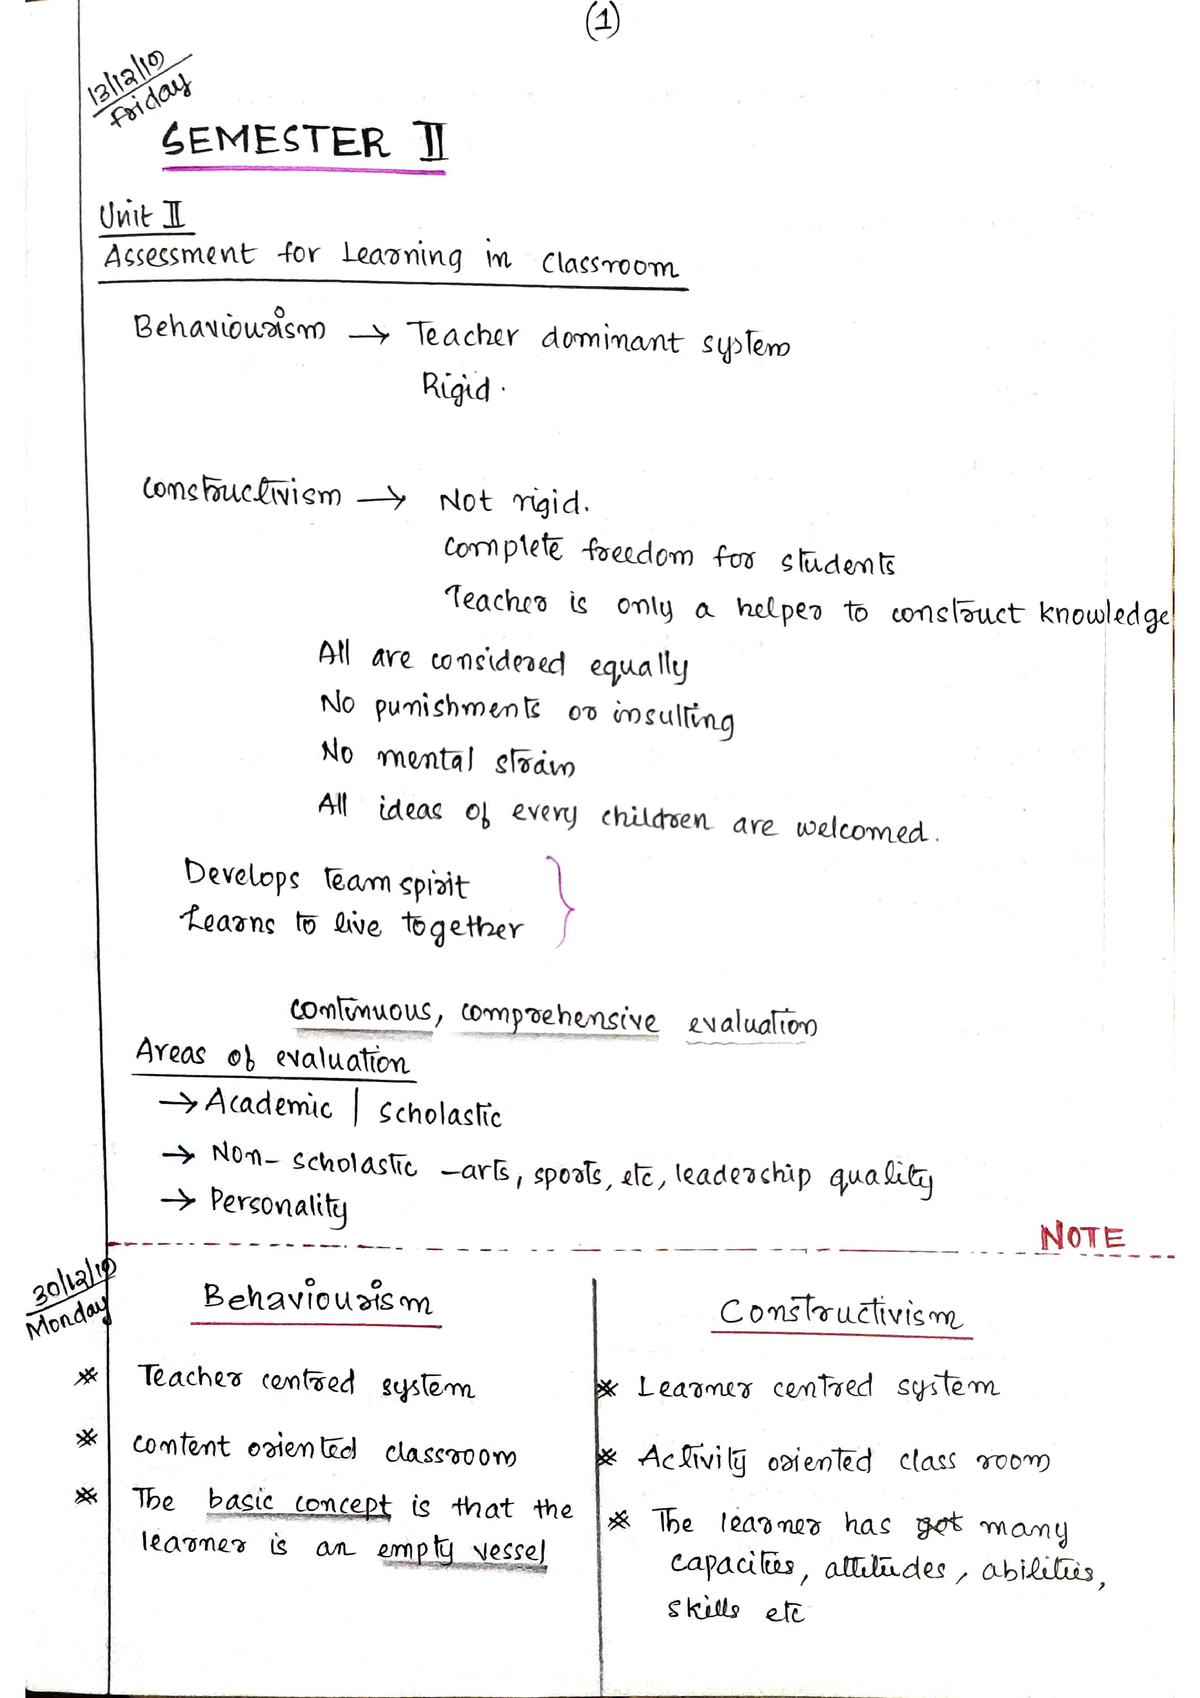 (1)
13/12/19
Friday
SEMESTER II
Unit II
Assessment for Learning in classroom
Behaviourism → Teacher dominant system
Rigid.
constructivism → Not rigid.
complete freedom for students
Teacher is only a helper to construct knowledge
All are considered equally
No punishments or insulting
No mental strain
All ideas of every children are welcomed.
Develops team spirit
Learns to live together
continuous, comprehensive evaluation
Areas of evaluation
→ Academic | scholastic
→ Non-scholastic - arts, sports, etc, leadership quality
→ Personality
NOTE
30/12/19
Monday
Behaviourism
* Teacher centred system
* content oriented classroom
* The basic concept is that the
learner is an empty vessel
Constructivism
* Learner centred system
* Activity oriented class room
* The learner has got many
capacities, attitudes, abilities,
skills etc